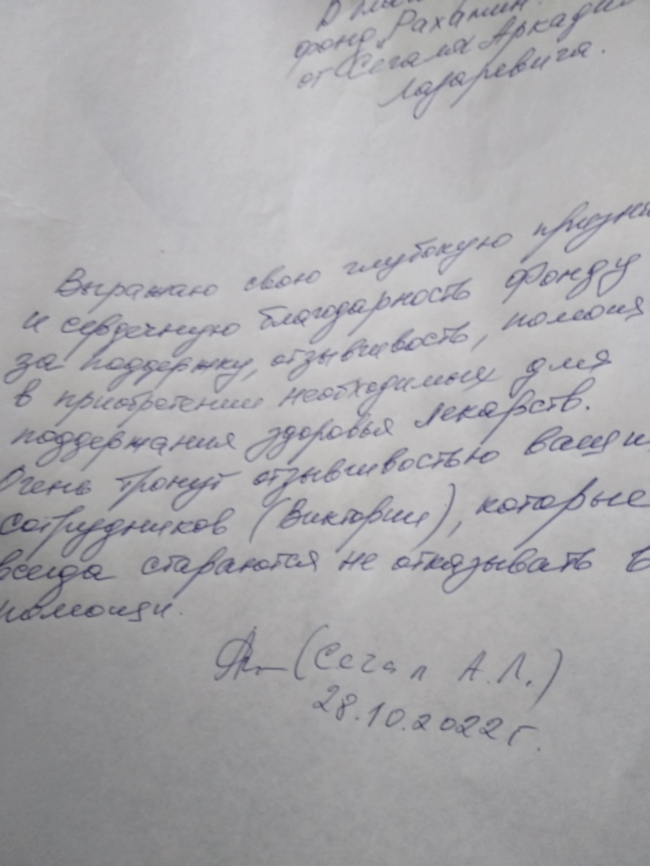 фонд "Рахамим"
от Сегала Аркадия
Лазаревича.
Выражаю свою глубокую
и сердечную благодарность Фонду
за поддержку, отзывчивость, помощь
в приобретении необходимых для
поддержания здоровья лекарств.
Очень тронут отзывчивостью ваших
сотрудников (Виктории), которые
всегда стараются не отказывать в
помощи.
(Сегал А.Л.)
28.10.2022г.